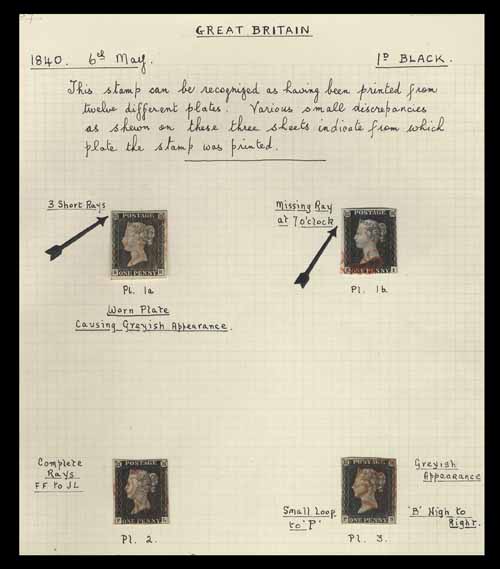 GREAT BRITAIN
1840. 6th May.
1D BLACK.
This stamp can be recognized as having been printed from
twelve different plates. Various small discrepancies
as shewn on these three sheets indicate from which
plate the stamp was printed.
3 Short Rays
Missing Ray
at 7 o'clock
POSTAGE
ONE PENNY
POSTAGE
ONE PENNY
Pl. 1a
Pl. 1b
Worn Plate
Causing Greyish Appearance.
Complete
Rays
FF to JL
POSTAGE
ONE PENNY
Pl. 2.
Small Loop
to 'P'
POSTAGE
ONE PENNY
Pl. 3.
Greyish
Appearance
'B' High to
Right.